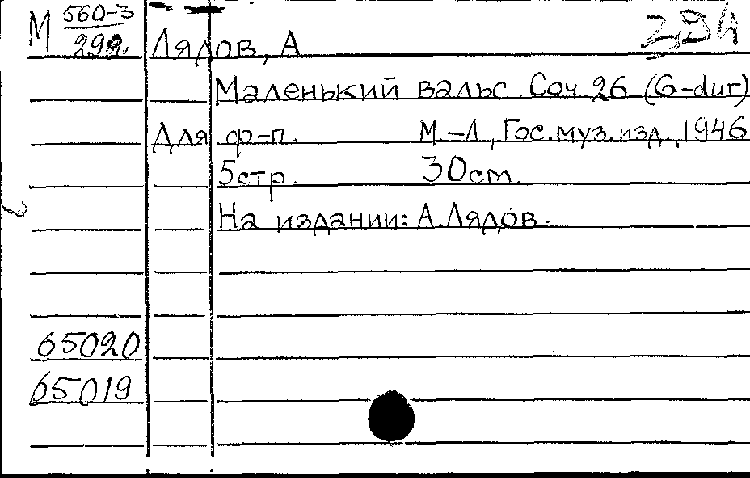 М 560-3 2,94
299. Лядов, А
Маленький вальс. Соч. 26 (G-dur)
Для ф-п. М.-Л., Гос. муз. изд., 1946
5 стр. 30 см.
На издании: А. Лядов.
65020
65019